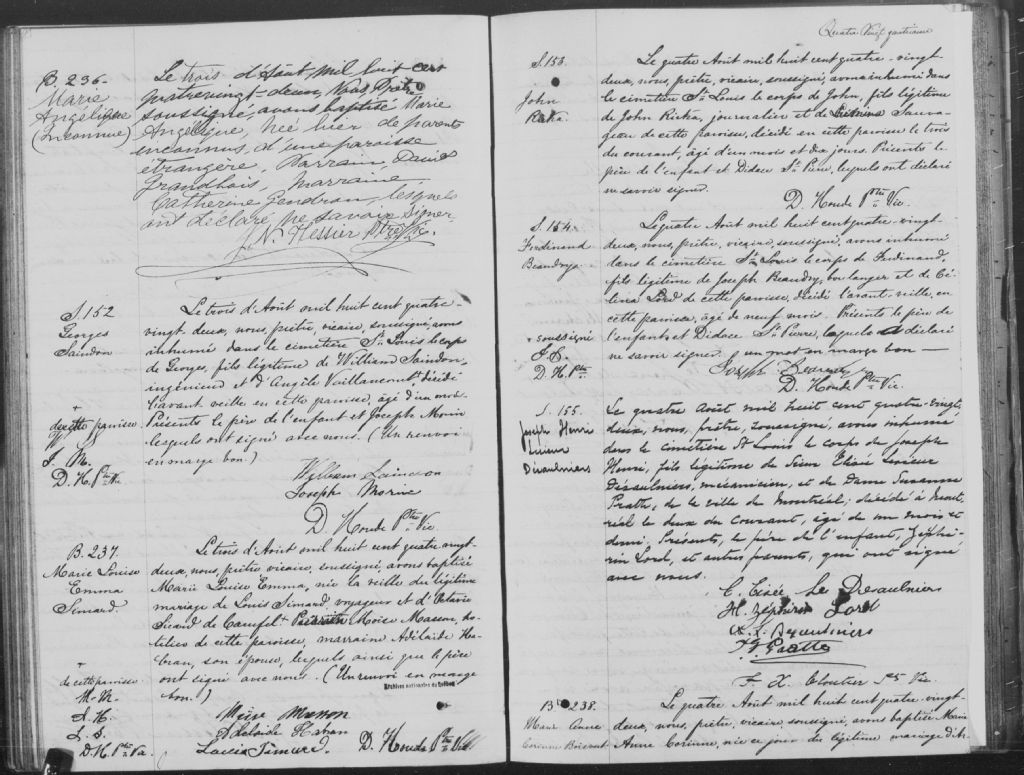 B. 236.
Marie
Angélique
(Inconnue)
Le trois d'Août, mil huit cent
quatrevingt-deux, Nous Prêtre
soussigné, avons baptisé Marie
Angélique, Née hier de parents
inconnus, d'une paroisse
étrangère. Parrain, David
Grandbois, Marraine
Catherine Gendron, lesquels
ont déclaré ne savoir signer,
J. N. Tessier Ptre Vic.
S. 152
Georges
Saindon
+
de cette paroisse
J. M.
D. H. Ptre Vic.
Le trois d'Août mil huit cent quatre-
vingt-deux, nous, prêtre, vicaire, soussigné, avons
inhumé dans le cimetière St. Louis le corps
de Georges, fils légitime de William Saindon,
ingénieur et d'Angèle Vaillancourt, décédé
l'avant veille en cette paroisse, âgé d'un mois.
Présents le père de l'enfant et Joseph Morin
lesquels ont signé avec nous. (Un renvoi
en marge bon.)
William Saindon
Joseph Morin
D. Houde Ptre Vic.
B. 237.
Marie Louise
Emma
Simard.
+
de cette paroisse
A. H.
L. S.
D. H. Ptre Vic.
Le trois d'Août mil huit cent quatre vingt-
deux, nous, prêtre vicaire, soussigné, avons baptisé
Marie Louise Emma, née la veille du légitime
mariage de Louis Simard, voyageur et d'Octavie
Moïse Masson, hô-
telier de cette paroisse, marraine Adélaïde
son épouse, lesquels ainsi que le père
ont signé avec nous. (Un renvoi en marge
bon.)
Archives nationales du Québec
Moïse Masson
Adelaide
Louis Simard. D. Houde Ptre Vic
Quatre Vingt quatrième
S. 153.
John
Le quatre Août mil huit cent quatre-vingt
deux, nous, prêtre, vicaire, soussigné, avons inhumé dans
le cimetière St. Louis le corps de John, fils légitime
de John journalier et de Sauva-
geau de cette paroisse, décédé en cette paroisse le trois
du courant, âgé d'un mois et dix jours. Présents le
père de l'enfant et Didace St. Pierre, lesquels ont déclaré
ne savoir signer.
D. Houde Ptre Vic.
S. 154.
Ferdinand
Beaudry
+ soussigné
D. H. Ptre
Le quatre Août mil huit cent quatre-vingt-
deux, nous, prêtre, vicaire, soussigné, avons inhumé
dans le cimetière St. Louis le corps de Ferdinand,
fils légitime de Joseph Beaudry, boulanger et de Cé-
lena Lord de cette paroisse, décédé l'avant-veille, en
cette paroisse, âgé de neuf mois. Présents le père de
l'enfant et Didace St. Pierre, déclaré
ne savoir signer. un mot en marge bon —
Joseph Beaudry
D. Houde Ptre Vic.
S. 155.
Joseph Henri
Lesieur
Désaulniers
Le quatre Août mil huit cent quatre-vingt,
deux, nous, prêtre, soussigné, avons inhumé
dans le cimetière St Louis le corps de Joseph
Henri, fils légitime de Sieur Elisée Lesieur
Désaulniers, mécanicien, et de Dame Susanne
Pratte, de la ville de Montréal; décédé à Mont,
réal le deux du courant, âgé de un mois et
demi. Présents, le père de l'enfant, Zéphi-
rin Lord, et autres parents, qui ont signé
avec nous.
C. Elisée Le Desaulniers
H. Zéphirin Lord
Desaulniers
Pratte
F. X. Cloutier Ptre Vic.
B. 238.
Marie Anne
Corinne
Le quatre Août mil huit cent quatre vingt-
deux, nous, prêtre, vicaire, soussigné, avons baptisé Marie
Anne Corinne, née ce jour du légitime mariage d'